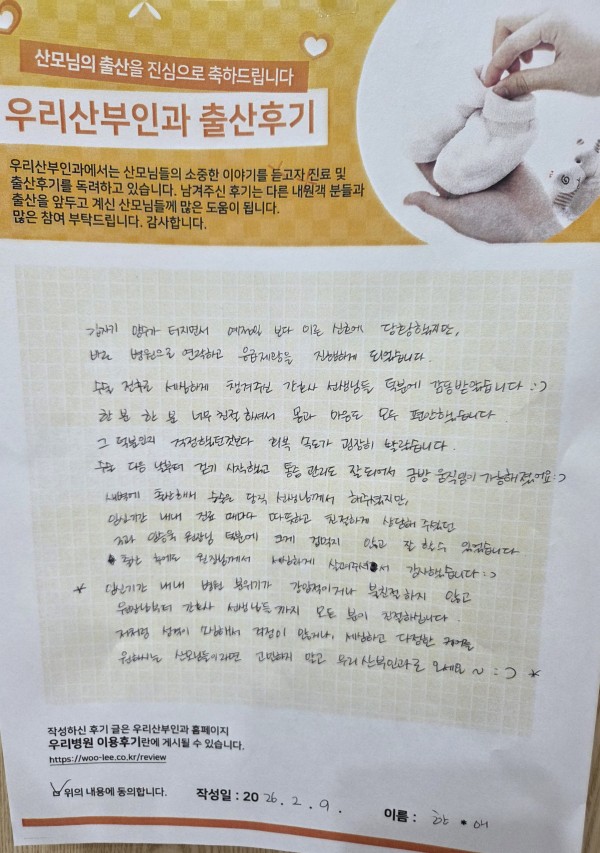 산모님의 출산을 진심으로 축하드립니다
우리산부인과 출산후기
우리산부인과에서는 산모님들의 소중한 이야기를 듣고자 진료 및
출산후기를 독려하고 있습니다. 남겨주신 후기는 다른 내원객 분들과
출산을 앞두고 계신 산모님들께 많은 도움이 됩니다.
많은 참여 부탁드립니다. 감사합니다.
갑자기 양수가 터지면서 예정일 보다 이른 신호에 당황했지만,
바로 병원으로 연락하고 응급제왕을 진행하게 되었습니다
수술 전후로 세심하게 챙겨주신 간호사 선생님들 덕분에 감동받았습니다 :)
한 분 한 분 너무 친절하셔서 몸과 마음도 모두 편안했습니다.
그 덕분인지 걱정했던것보다 회복 속도가 굉장히 빨랐습니다.
수술 다음 날부터 걷기 시작했고 통증 관리도 잘 되어서 금방 움직임이 가능해졌어요 :)
새벽에 출산해서 수술은 당직 선생님께서 해주셨지만,
임신기간 내내 진료 때마다 따뜻하고 친절하게 상담해 주셨던
원장님 덕분에 크게 겁먹지 않고 잘 할 수 있었습니다
출산 후에도 원장님께서 세심하게 살펴주셔서 감사했습니다 :)
* 임신기간 내내 병원 분위기가 강압적이거나 불친절하지 않고
원장님부터 간호사 선생님들까지 모든 분이 친절하십니다.
저처럼 성격이 걱정이 많거나, 세심하고 다정한 케어를
원하시는 산모님들이라면 고민하지 말고 우리산부인과로 오세요 ~ :) *
작성하신 후기 글은 우리산부인과 홈페이지
우리병원 이용후기란에 게시될 수 있습니다.
https://woo-lee.co.kr/review
위의 내용에 동의합니다. 작성일 : 2026. 2. 9. 이름 : 한 • 애